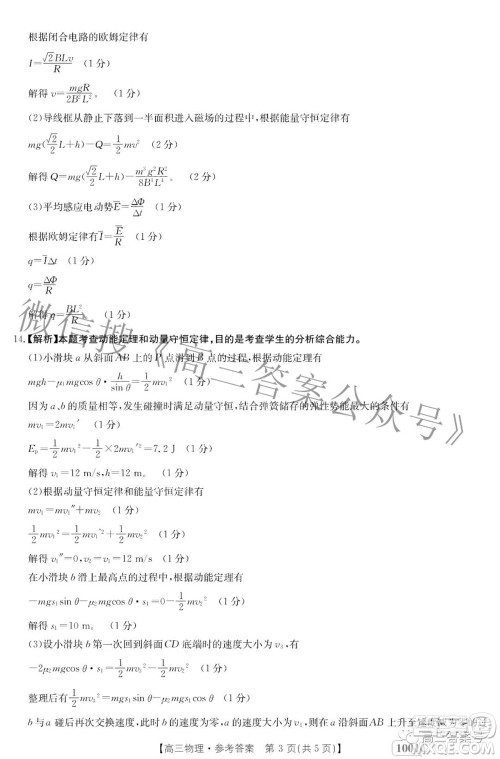 根据闭合电路的欧姆定律有
I=√2BLv/R (1分)
解得 v=mgR/2B²L²。 (1分)
(2)导线框从静止下落到一半面积进入磁场的过程中,根据能量守恒定律有
mg(√2/2 L+h)-Q=1/2 mv² (2分)
解得 Q=mg(√2/2 L+h)-m³g²R²/8B⁴L⁴。 (1分)
(3)平均感应电动势E̅=ΔΦ/Δt (1分)
根据欧姆定律有I̅=E̅/R (1分)
q=I̅Δt (1分)
q=ΔΦ/R
解得 q=BL²/R (1分)
14.【解析】本题考查动能定理和动量守恒定律,目的是考查学生的分析综合能力。
(1)小滑块 a 从斜面AB 上的P 点滑到B 点的过程中,根据动能定理有
mgh-μ₁mgcos θ·h/sin θ=1/2 mv₁² (1分)
因为 a、b 的质量相等,发生碰撞时满足动量守恒,结合弹簧储存的弹性势能最大的条件有
mv₁=2mv₁′ (1分)
Eₚ=1/2 mv₁²-1/2×2mv₁′²=7.2 J (1分)
解得 v₁=12 m/s,h=12 m。 (1分)
(2)根据动量守恒定律和能量守恒定律有
mv₁=mv₁″+mv₂ (1分)
1/2 mv₁²=1/2 mv₁″²+1/2 mv₂² (1分)
解得 v₁″=0,v₂=v₁=12 m/s (1分)
在小滑块 b 滑上最高点的过程中,根据动能定理有
-mgs₁sin θ-μ₂mgcos θ·s₁=0-1/2 mv₂² (1分)
解得 s₁=10 m。 (1分)
(3)设小滑块 b 第一次回到斜面 CD 底端时的速度大小为 v₃,有
-2μ₂mgcos θ·s₁=1/2 mv₃²-1/2 mv₂² (1分)
整理后有
b 与a 碰后再次交换速度,此时b 的速度大小为零,a 的
【高三物理·参考答案 第 3 页(共 5 页)】
微信搜《高三答案公众号》